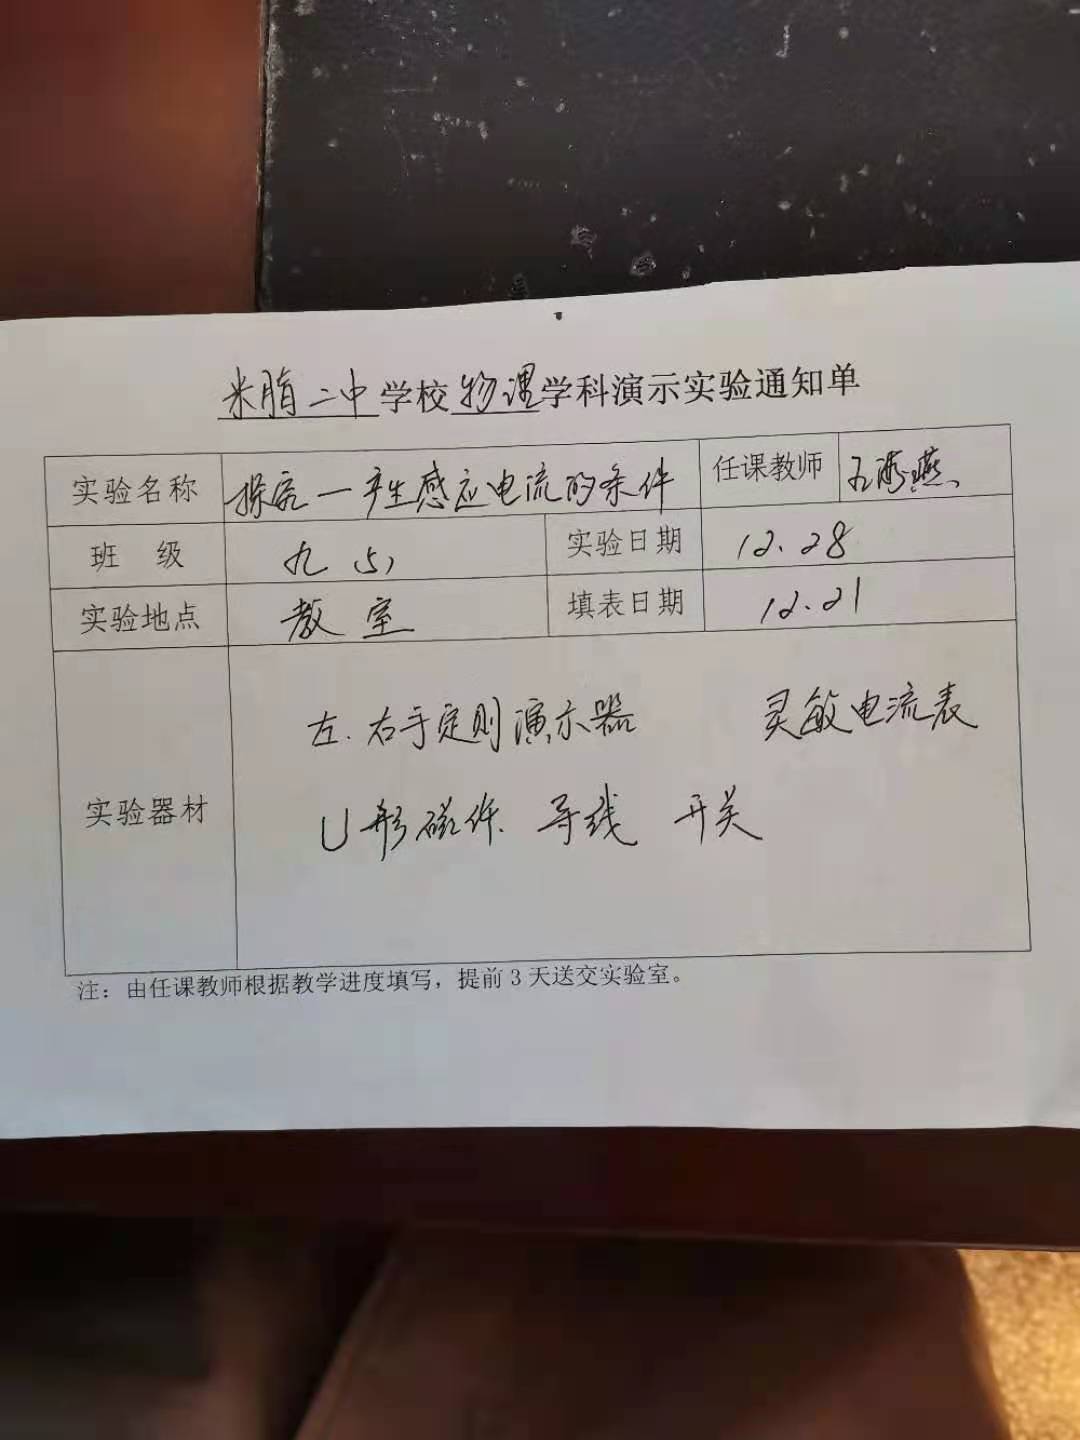 米脂二中学校物理学科演示实验通知单
实验名称 探究一产生感应电流的条件 任课教师 海燕
班 级 九（5） 实验日期 12.28
实验地点 教室 填表日期 12.21
左.右手定则演示器 灵敏电流表
实验器材
U形磁体 导线 开关
注：由任课教师根据教学进度填写，提前3天送交实验室。